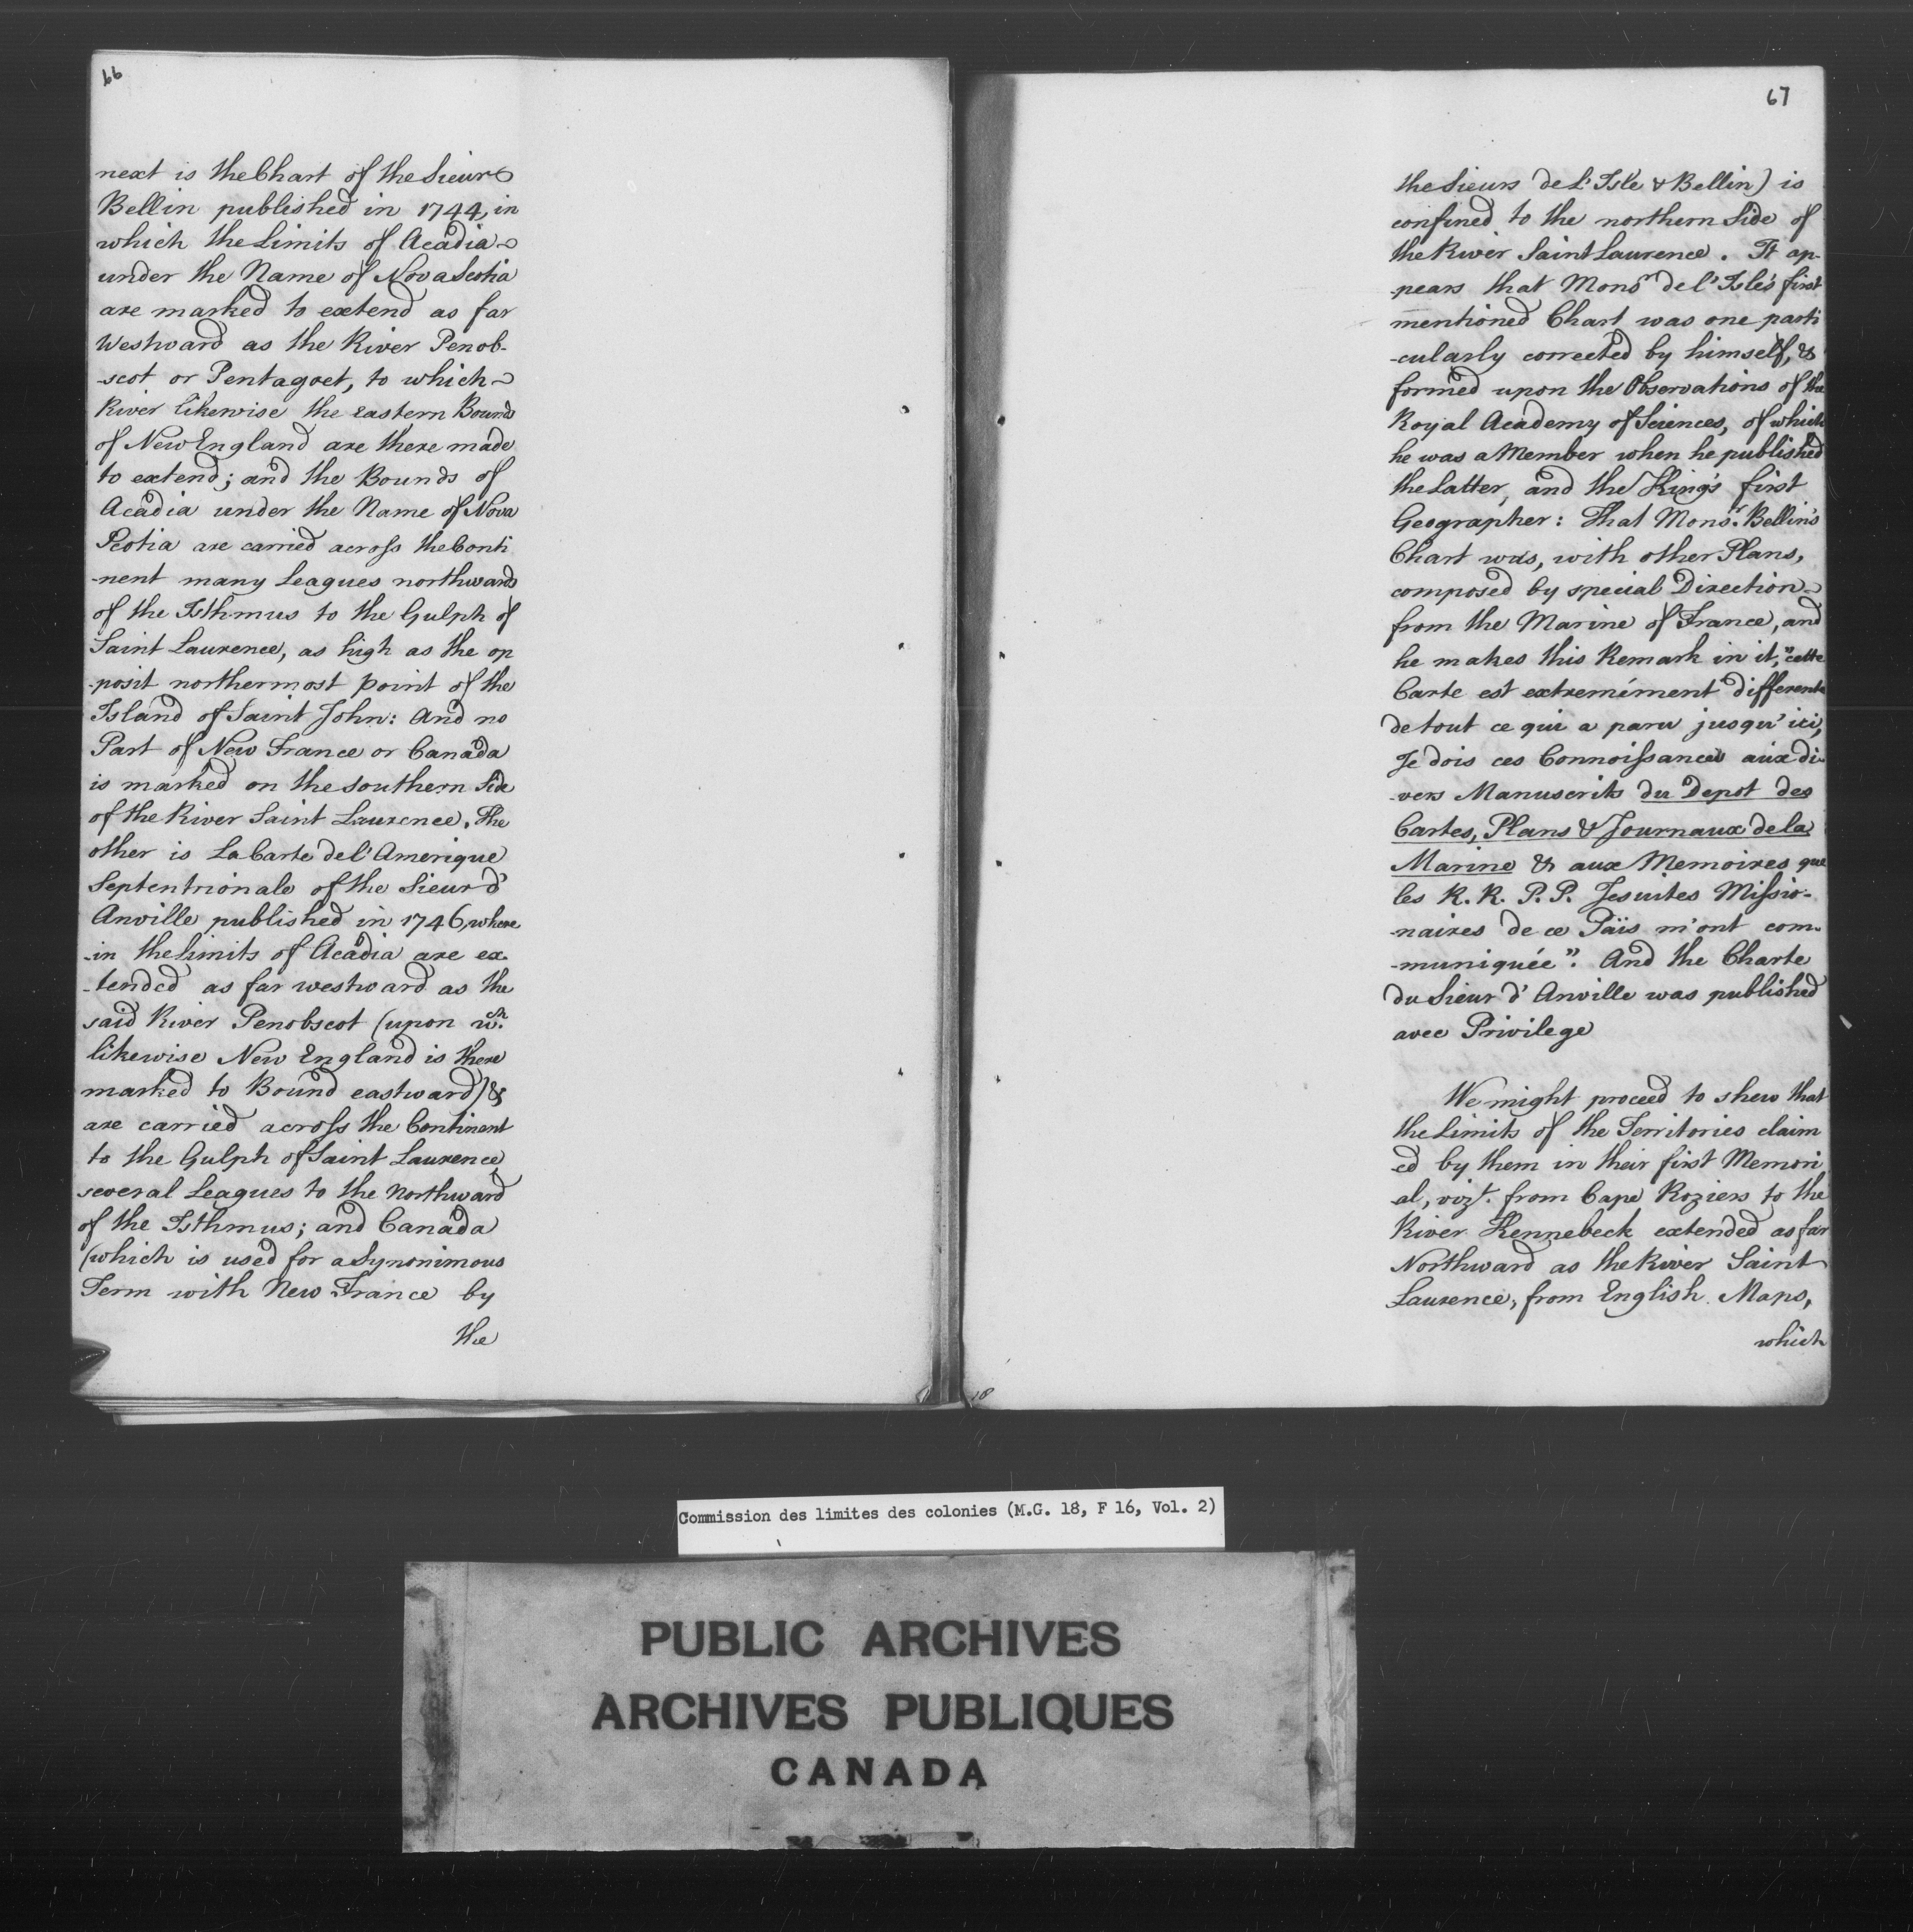 66
next is the Chart of the Sieur
Bellin published in 1744, in
which the Limits of Acadia
under the Name of Nova Scotia
are marked to extend as far
Westward as the River Penob-
-scot or Pentagoet, to which
River likewise the eastern Bounds
of New England are there made
to extend; and the Bounds of
Acadia under the Name of Nova
Scotia are carried across the Conti
-nent many Leagues northwards
of the Isthmus to the Gulph of
Saint Laurence, as high as the op
-posit northermost point of the
Island of Saint John: And no
Part of New France or Canada
is marked on the southern Side
of the River Saint Laurence. The
other is La Carte del' Amerique
Septentrionale of the Sieur d'
Anville published in 1746, where
-in the Limits of Acadia are ex-
-tended as far westward as the
said River Penobscot (upon wch.
likewise New England is there
marked to Bound eastward) &
are carried across the Continent
to the Gulph of Saint Laurence,
several Leagues to the Northward
of the Isthmus; and Canada
(which is used for a Synonimous
Term with New France by
the
67
the Sieurs de L'Isle & Bellin) is
confined to the northern Side of
the River Saint Laurence. It ap-
-pears that Monsr del'Isle's first
mentioned Chart was one parti
-cularly corrected by himself, &
formed upon the Observations of the
Royal Academy of Sciences, of which
he was a Member when he published
the Latter, and the King's first
Geographer: That Monsr. Bellin's
Chart was, with other Plans,
composed by special Direction
from the Marine of France, and
he makes this Remark in it, "cette
Carte est extremément differente
de tout ce qui a paru jusqu'ici,
Je dois ces Connoissances aux di-
-vers Manuscrits du Depot des
Cartes, Plans & Journaux de la
Marine & aux Memoires que
les R. R. P. P. Jesuites Missio-
-naires de ce Païs m'ont com-
-muniquée". And the Charte
du Sieur d'Anville was published
avec Privilege
We might proceed to shew that
the Limits of the Territories claim
-ed by them in their first Memori
-al, vizt. from Cape Roziers to the
River Kennebeck extended as far
Northward as the River Saint
Laurence, from English Maps,
which
18
Commission des limites des colonies (M.G. 18, F 16, Vol. 2)
PUBLIC ARCHIVES
ARCHIVES PUBLIQUES
CANADA